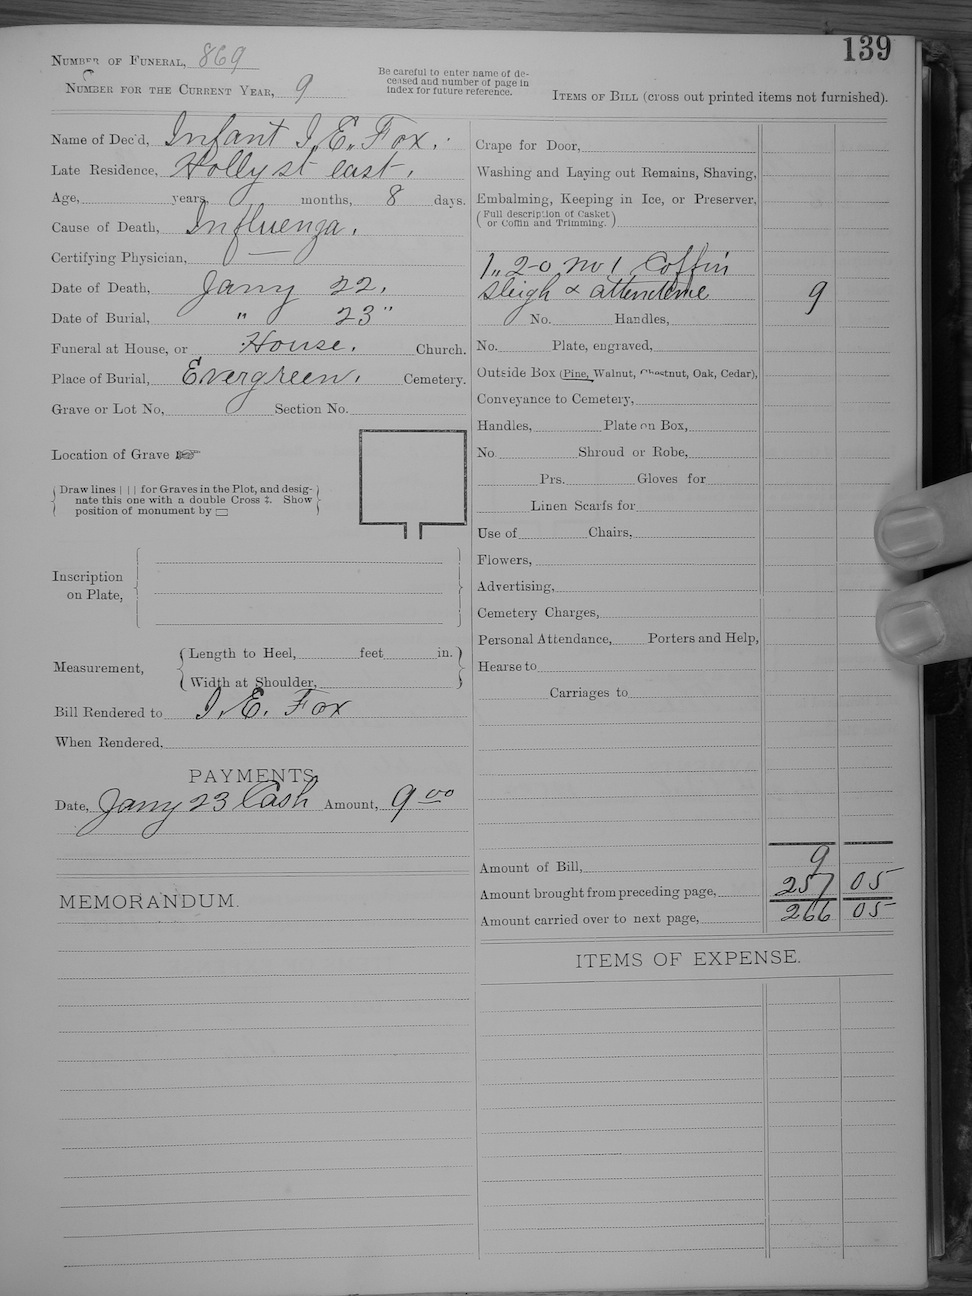 139
Number of Funeral, 869
Number for the Current Year, 9
Be careful to enter name of de-
ceased and number of page in
index for future reference.
Items of Bill (cross out printed items not furnished).
Name of Dec'd, Infant I. E. Fox.
Late Residence, Holly st east.
Age, years, months, 8 days.
Cause of Death, Influenza.
Certifying Physician, —
Date of Death, Jany 22.
Date of Burial, " 23"
Funeral at House, or House. Church.
Place of Burial, Evergreen. Cemetery.
Grave or Lot No, Section No.
Location of Grave ☞
(Draw lines | | | for Graves in the Plot, and desig-
nate this one with a double Cross ‡. Show
position of monument by ▭)
Inscription
on Plate,
Measurement,
Length to Heel, feet in.
Width at Shoulder,
Bill Rendered to I. E. Fox
When Rendered,
PAYMENTS.
Date, Jany 23 Cash Amount, 9 00
MEMORANDUM.
Crape for Door,
Washing and Laying out Remains, Shaving,
Embalming, Keeping in Ice, or Preserver,
(Full description of Casket
or Coffin and Trimming.)
1,, 2-0 no 1 Coffin
sleigh & attendance 9
No. Handles,
No. Plate, engraved,
Outside Box (Pine, Walnut, Chestnut, Oak, Cedar),
Conveyance to Cemetery,
Handles, Plate on Box,
No. Shroud or Robe,
Prs. Gloves for
Linen Scarfs for
Use of Chairs,
Flowers,
Advertising,
Cemetery Charges,
Personal Attendance, Porters and Help,
Hearse to
Carriages to
Amount of Bill, 9
Amount brought from preceding page, 257 05
Amount carried over to next page, 266 05
ITEMS OF EXPENSE.